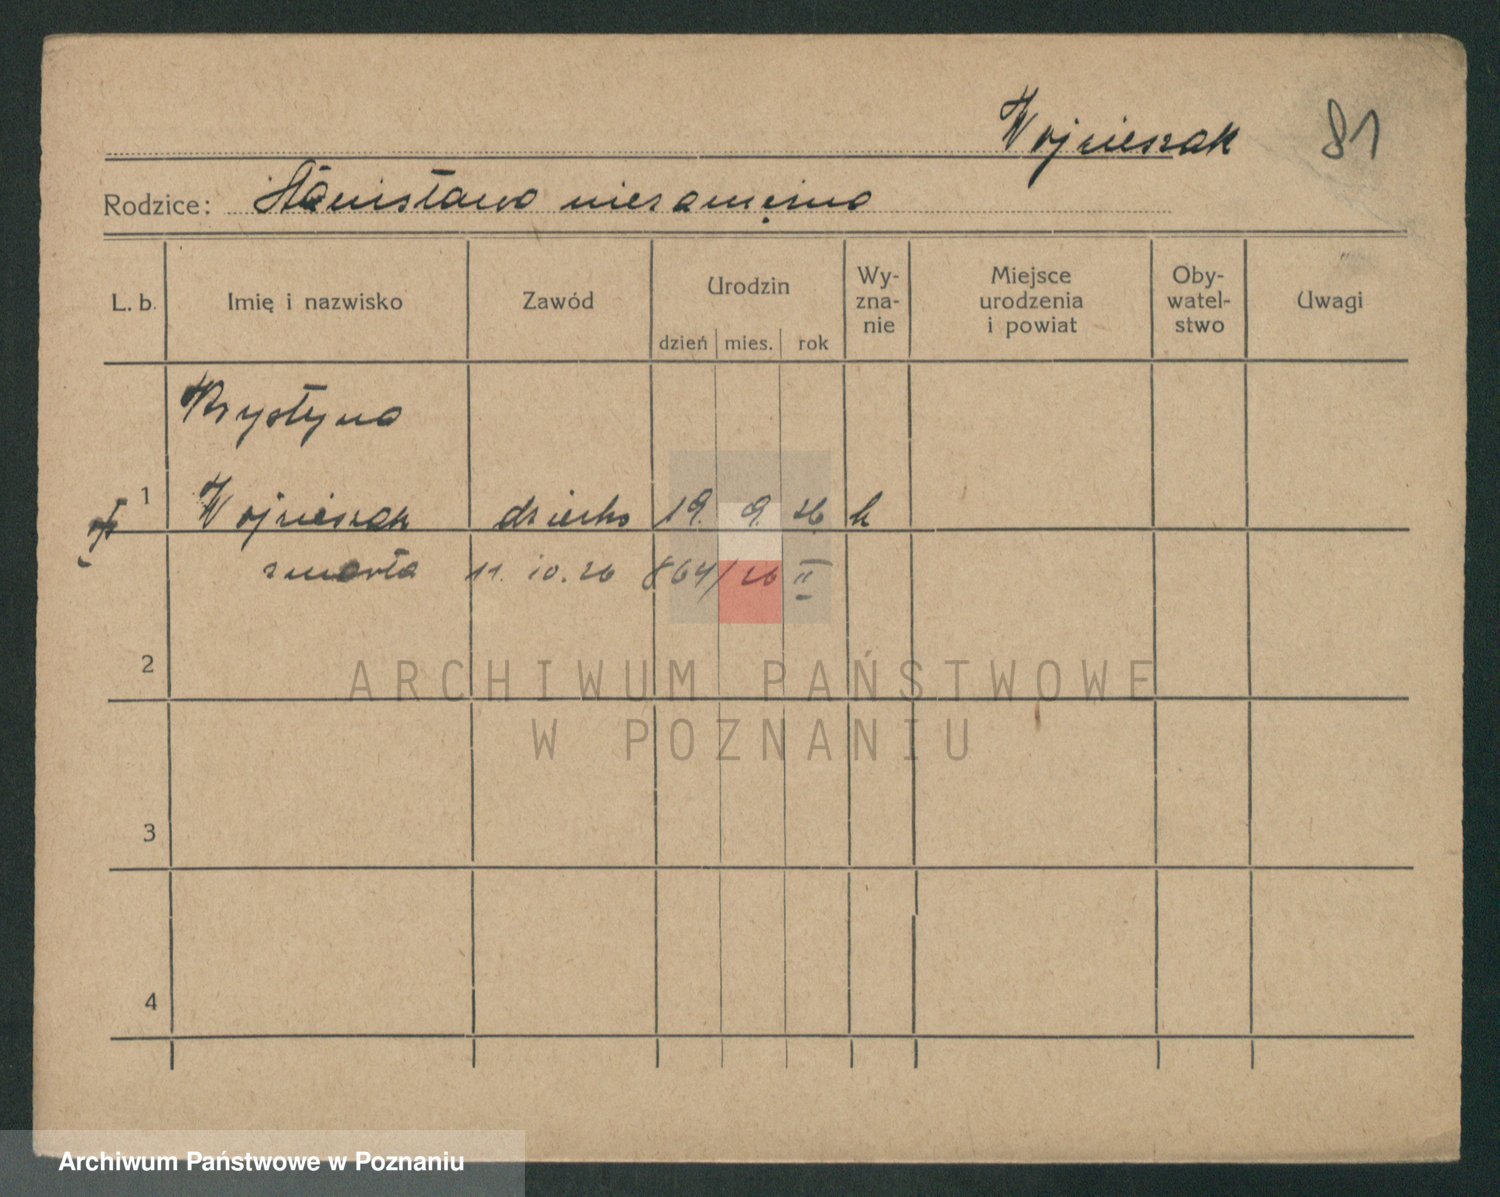 Wojcieszak 81
Rodzice: Stanisława niezamężna
L. b. Imię i nazwisko Zawód Urodzin Wy-zna-nie Miejsce urodzenia i powiat Oby-watel-stwo Uwagi
dzień mies. rok
Krystyna
1 Wojcieszak dziecko 19. 9. 26 k
zmarła 11. 10. 26 864/26 II
2
ARCHIWUM PAŃSTWOWE
W POZNANIU
3
4
Archiwum Państwowe w Poznaniu